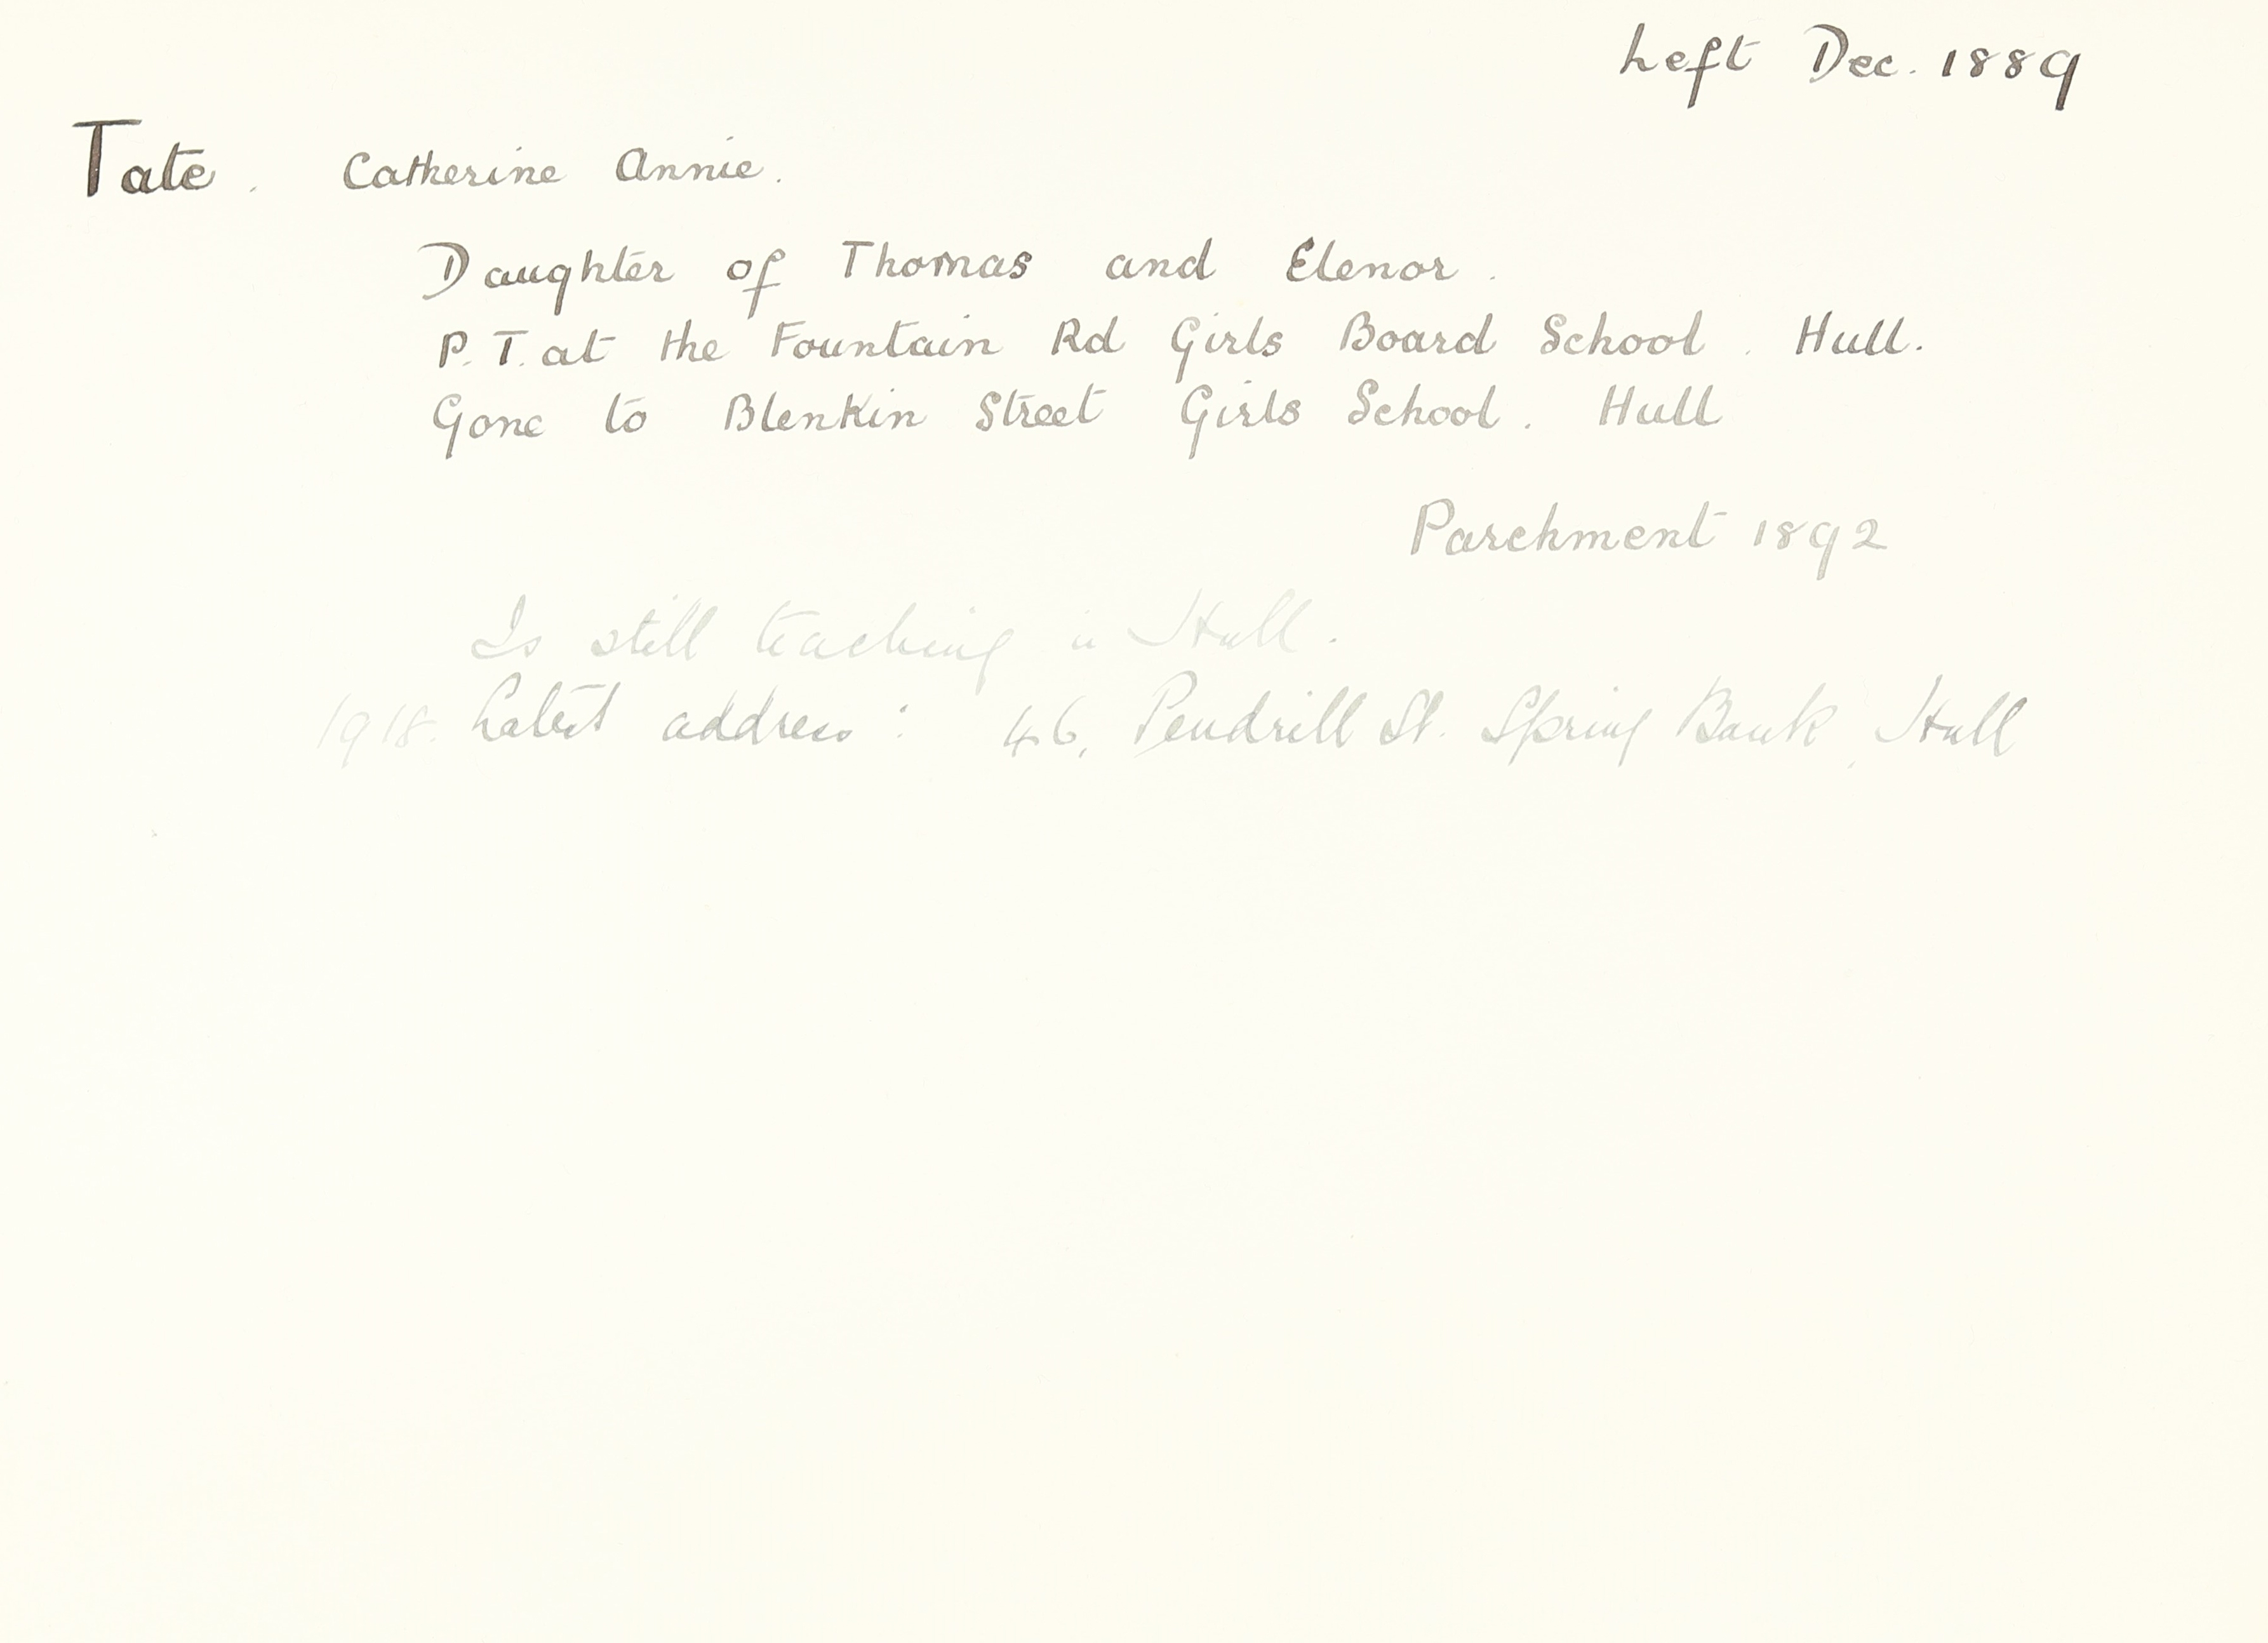 Left Dec. 1889
Tate. Catherine Annie.
Daughter of Thomas and Elenor.
P.T. at the Fountain Rd Girls Board School. Hull.
Gone to Blenkin Street Girls School. Hull
Parchment 1892
Is still teaching in Hull.
1918. Latest address: 46, Pendrill St. Spring Bank, Hull